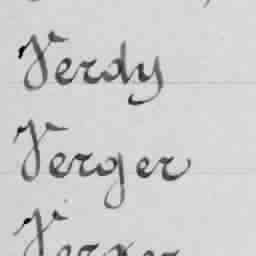 Verdy
Verger